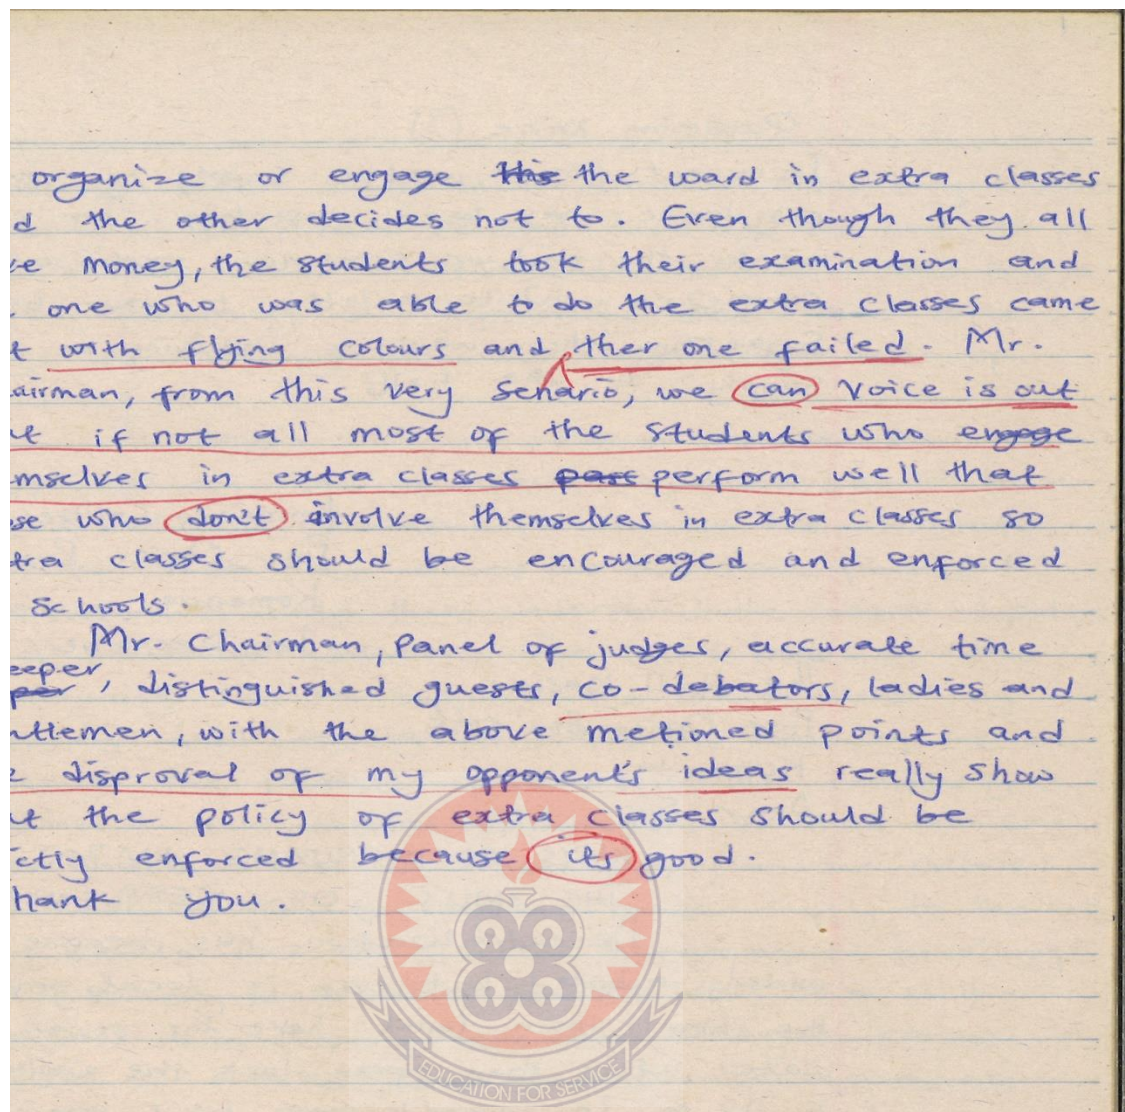 organize or engage the ward in extra classes
d the other decides not to. Even though they all
money, the students took their examination and
one who was able to do the extra classes came
t with flying colours and ther one failed. Mr.
airman, from this very senario, we can voice is out
if not all most of the students who engage
mselves in extra classes perform well that
se who don't involve themselves in extra classes so
tra classes should be encouraged and enforced
schools.
Mr. Chairman, Panel of judges, accurate time
eeper, distinguished guests, co-debators, ladies and
ntlemen, with the above metioned points and
disproval of my opponent's ideas really show
the policy of extra classes should be
ctly enforced because its good.
hank you.
EDUCATION FOR SERVICE